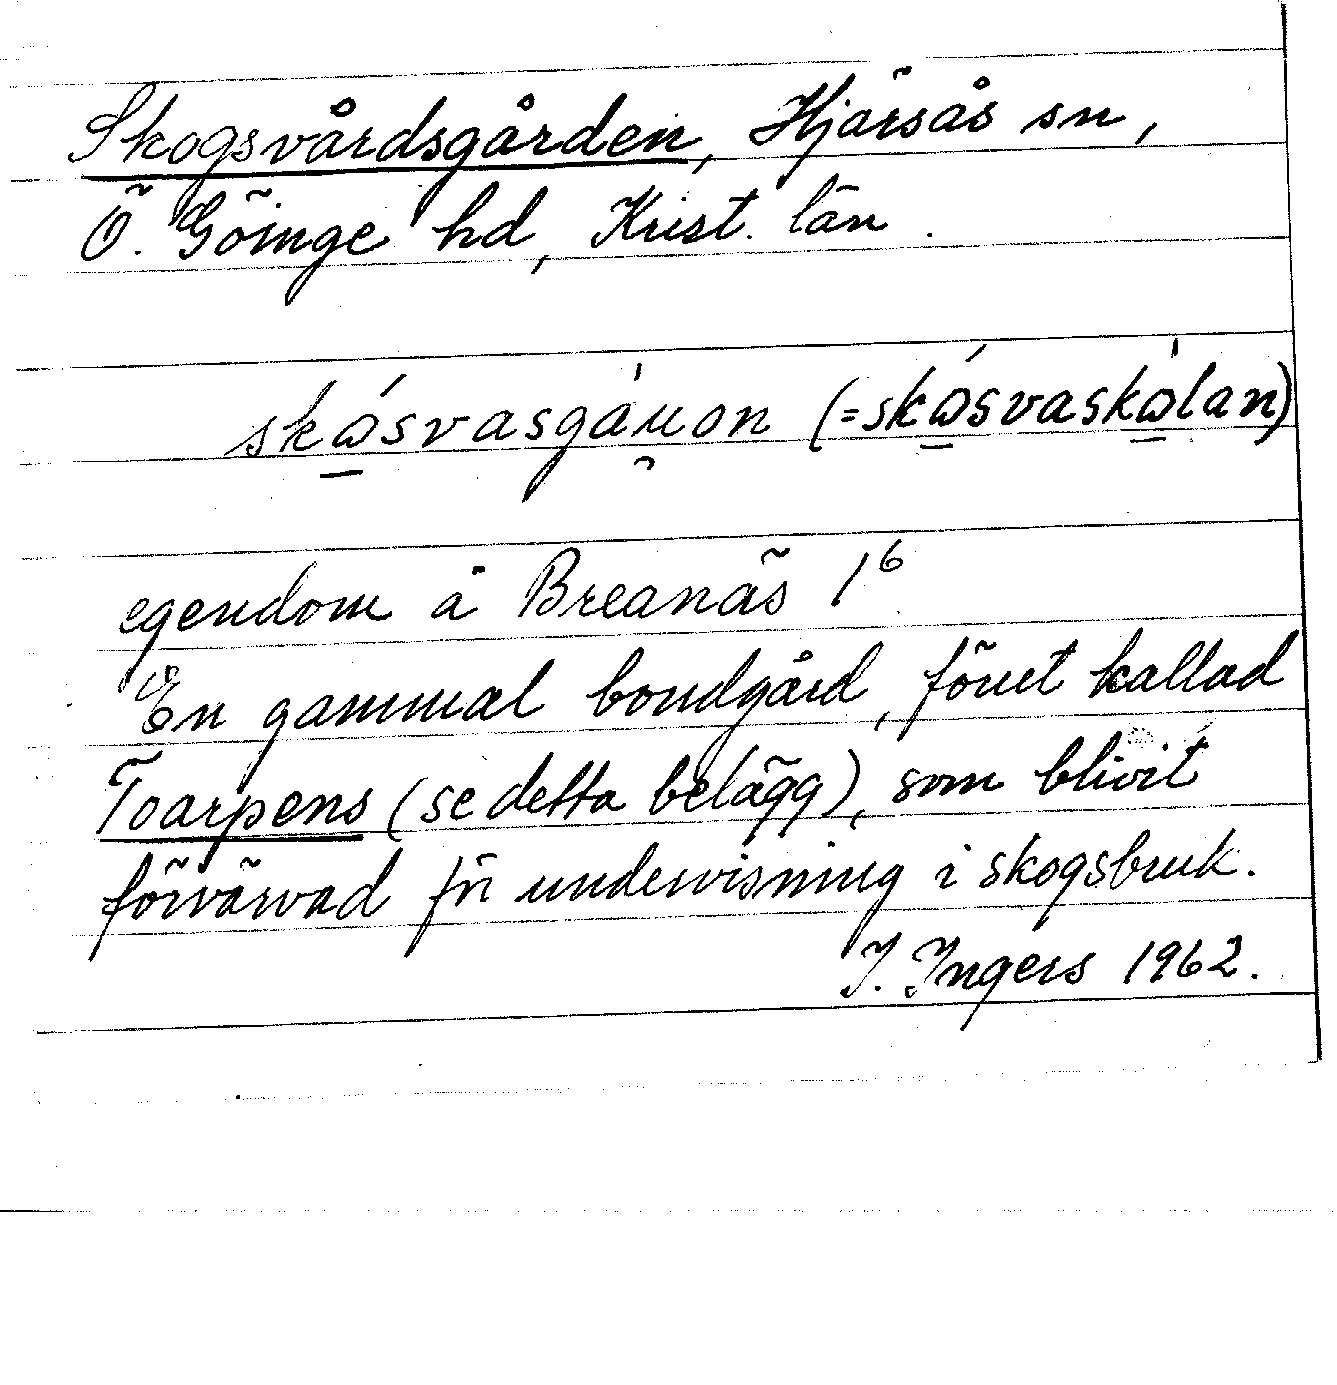 Skogsvårdsgården, Hjärsås sn,
Ö. Göinge hd, Krist. län.
skósvasgáu̯on (=skósvaskòlan)
egendom å Breanäs 1⁶
En gammal bondgård, förut kallad
Toarpens (se detta belägg), som blivit
förvärvad för undervisning i skogsbruk.
I. Ingers 1962.